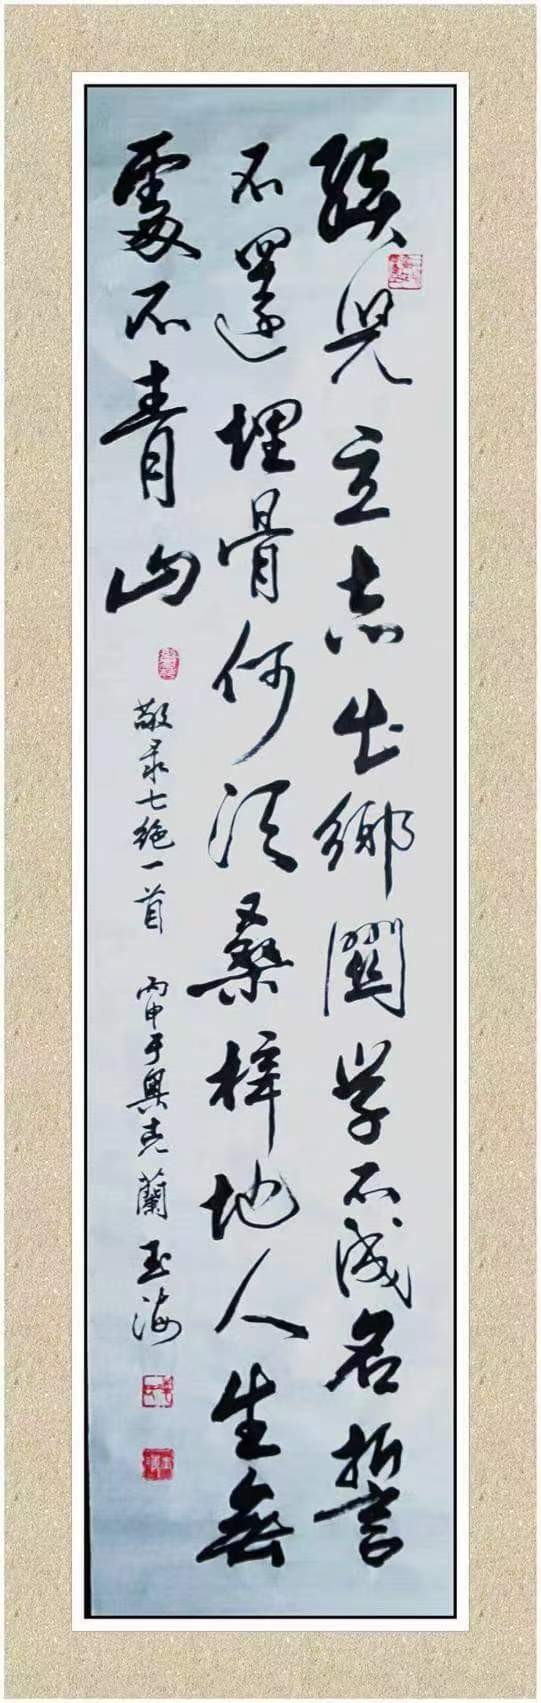 孩兒立志出鄉關学不成名誓
不還埋骨何须桑梓地人生無
處不青山
敬录七绝一首 丙申于奥克蘭 玉海